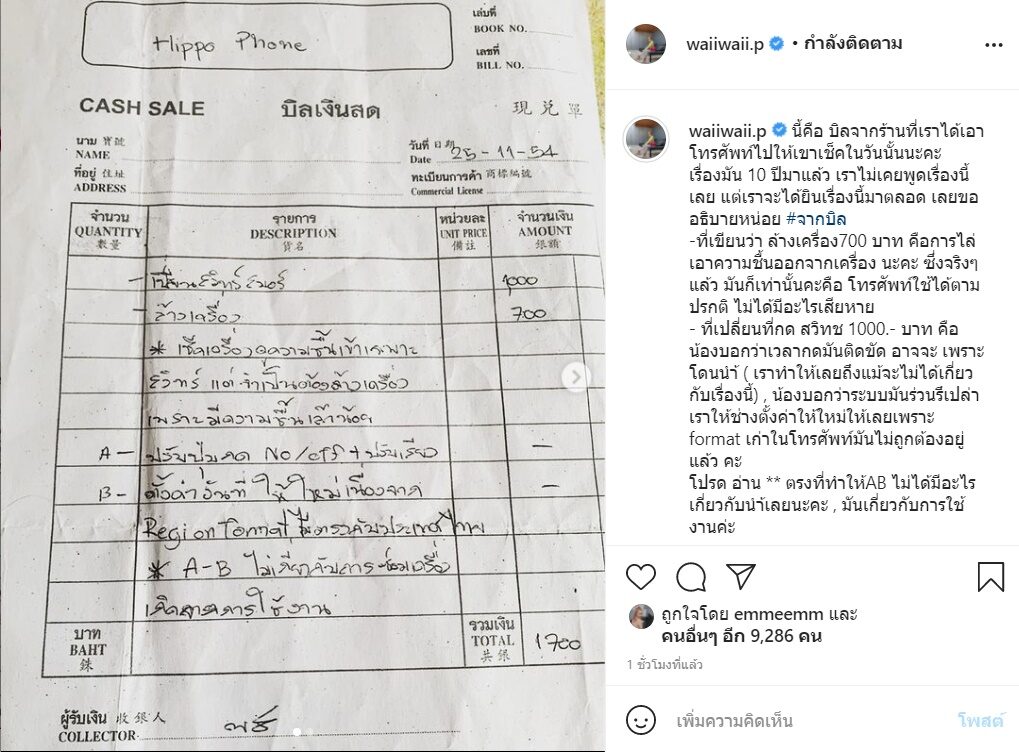 Hippo Phone
เล่มที่
BOOK NO.
เลขที่
BILL NO.
CASH SALE บิลเงินสด 現兌單
นาม 寶號
NAME
วันที่ 日期
Date 25-11-54
ที่อยู่ 住址
ADDRESS
ทะเบียนการค้า 商標編號
Commercial License
จำนวน รายการ หน่วยละ จำนวนเงิน
QUANTITY DESCRIPTION UNIT PRICE AMOUNT
數量 貨名 備註 銀額
- เปลี่ยนสวิทช์ 1000
- ล้างเครื่อง 700
* เช็คเครื่อง ความชื้นเข้าเฉพาะ
สวิทช์ แต่จำเป็นต้องล้างเครื่อง
เพราะมีความชื้นเล็กน้อย
A - ปรับปุ่มกด No/off + ปรับเสียง -
B - ตั้งค่าวันที่ ให้ใหม่เนื่องจาก -
Region Format ไม่ตรงกับประเทศไทย
* A-B ไม่เกี่ยวกับการซ่อมเครื่อง
เกิดจากการใช้งาน
บาท รวมเงิน
BAHT TOTAL 1700
銖 共銀
ผู้รับเงิน 收銀人
COLLECTOR
waiiwaii.p • กำลังติดตาม
waiiwaii.p นี้คือ บิลจากร้านที่เราได้เอา
โทรศัพท์ไปให้เขาเช็คในวันนั้นนะคะ
เรื่องมัน 10 ปีมาแล้ว เราไม่เคยพูดเรื่องนี้
เลย แต่เราจะได้ยินเรื่องนี้มาตลอด เลยขอ
อธิบายหน่อย #จากบิล
-ที่เขียนว่า ล้างเครื่อง700 บาท คือการไล่
เอาความชื้นออกจากเครื่อง นะคะ ซึ่งจริงๆ
แล้ว มันก็เท่านั้นคะคือ โทรศัพท์ใช้ได้ตาม
ปรกติ ไม่ได้มีอะไรเสียหาย
- ที่เปลี่ยนที่กด สวิทช 1000.- บาท คือ
น้องบอกว่าเวลากดมันติดขัด อาจจะ เพราะ
โดนนำ้ ( เราทำให้เลยถึงแม้จะไม่ได้เกี่ยว
กับเรื่องนี้) , น้องบอกว่าระบบมันร่วนรึเปล่า
เราให้ช่างตั้งค่าให้ใหม่ให้เลยเพราะ
format เก่าในโทรศัพท์มันไม่ถูกต้องอยู่
แล้ว คะ
โปรด อ่าน ** ตรงที่ทำให้AB ไม่ได้มีอะไร
เกี่ยวกับนำ้เลยนะคะ , มันเกี่ยวกับการใช้
งานค่ะ
ถูกใจโดย emmeemm และ
คนอื่นๆ อีก 9,286 คน
1 ชั่วโมงที่แล้ว
เพิ่มความคิดเห็น โพสต์